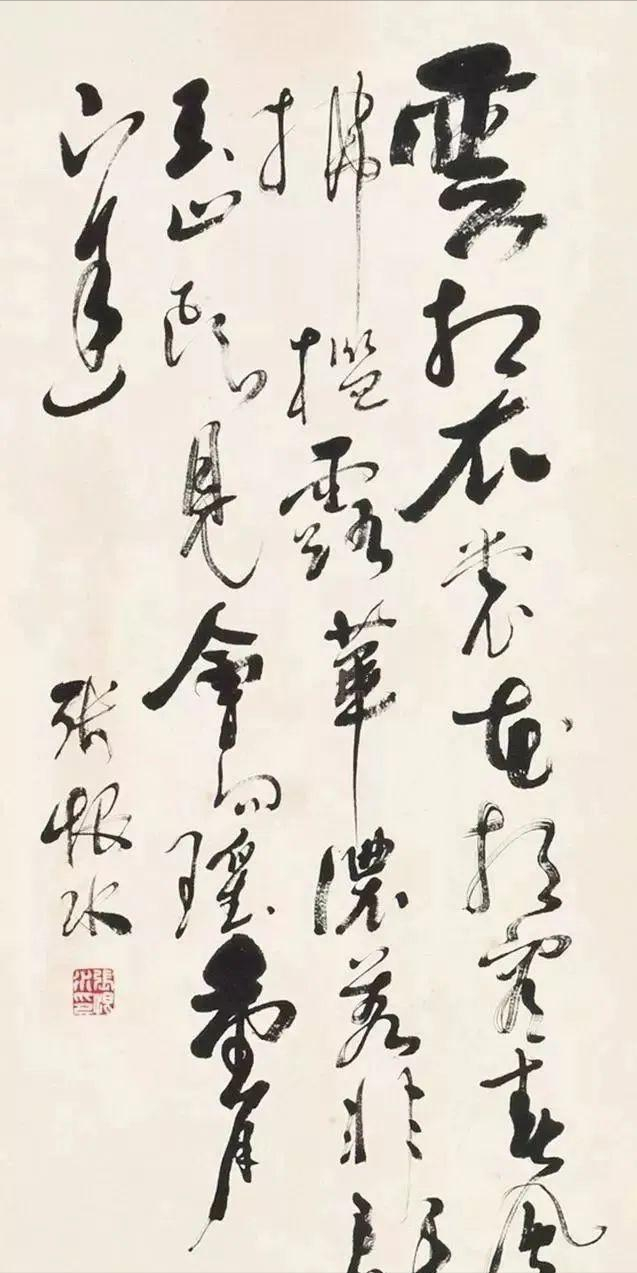 雲想衣裳花想容春風
拂檻露華濃若非群
玉山頭見會向瑤臺月
下逢
張恨水
張恨水印